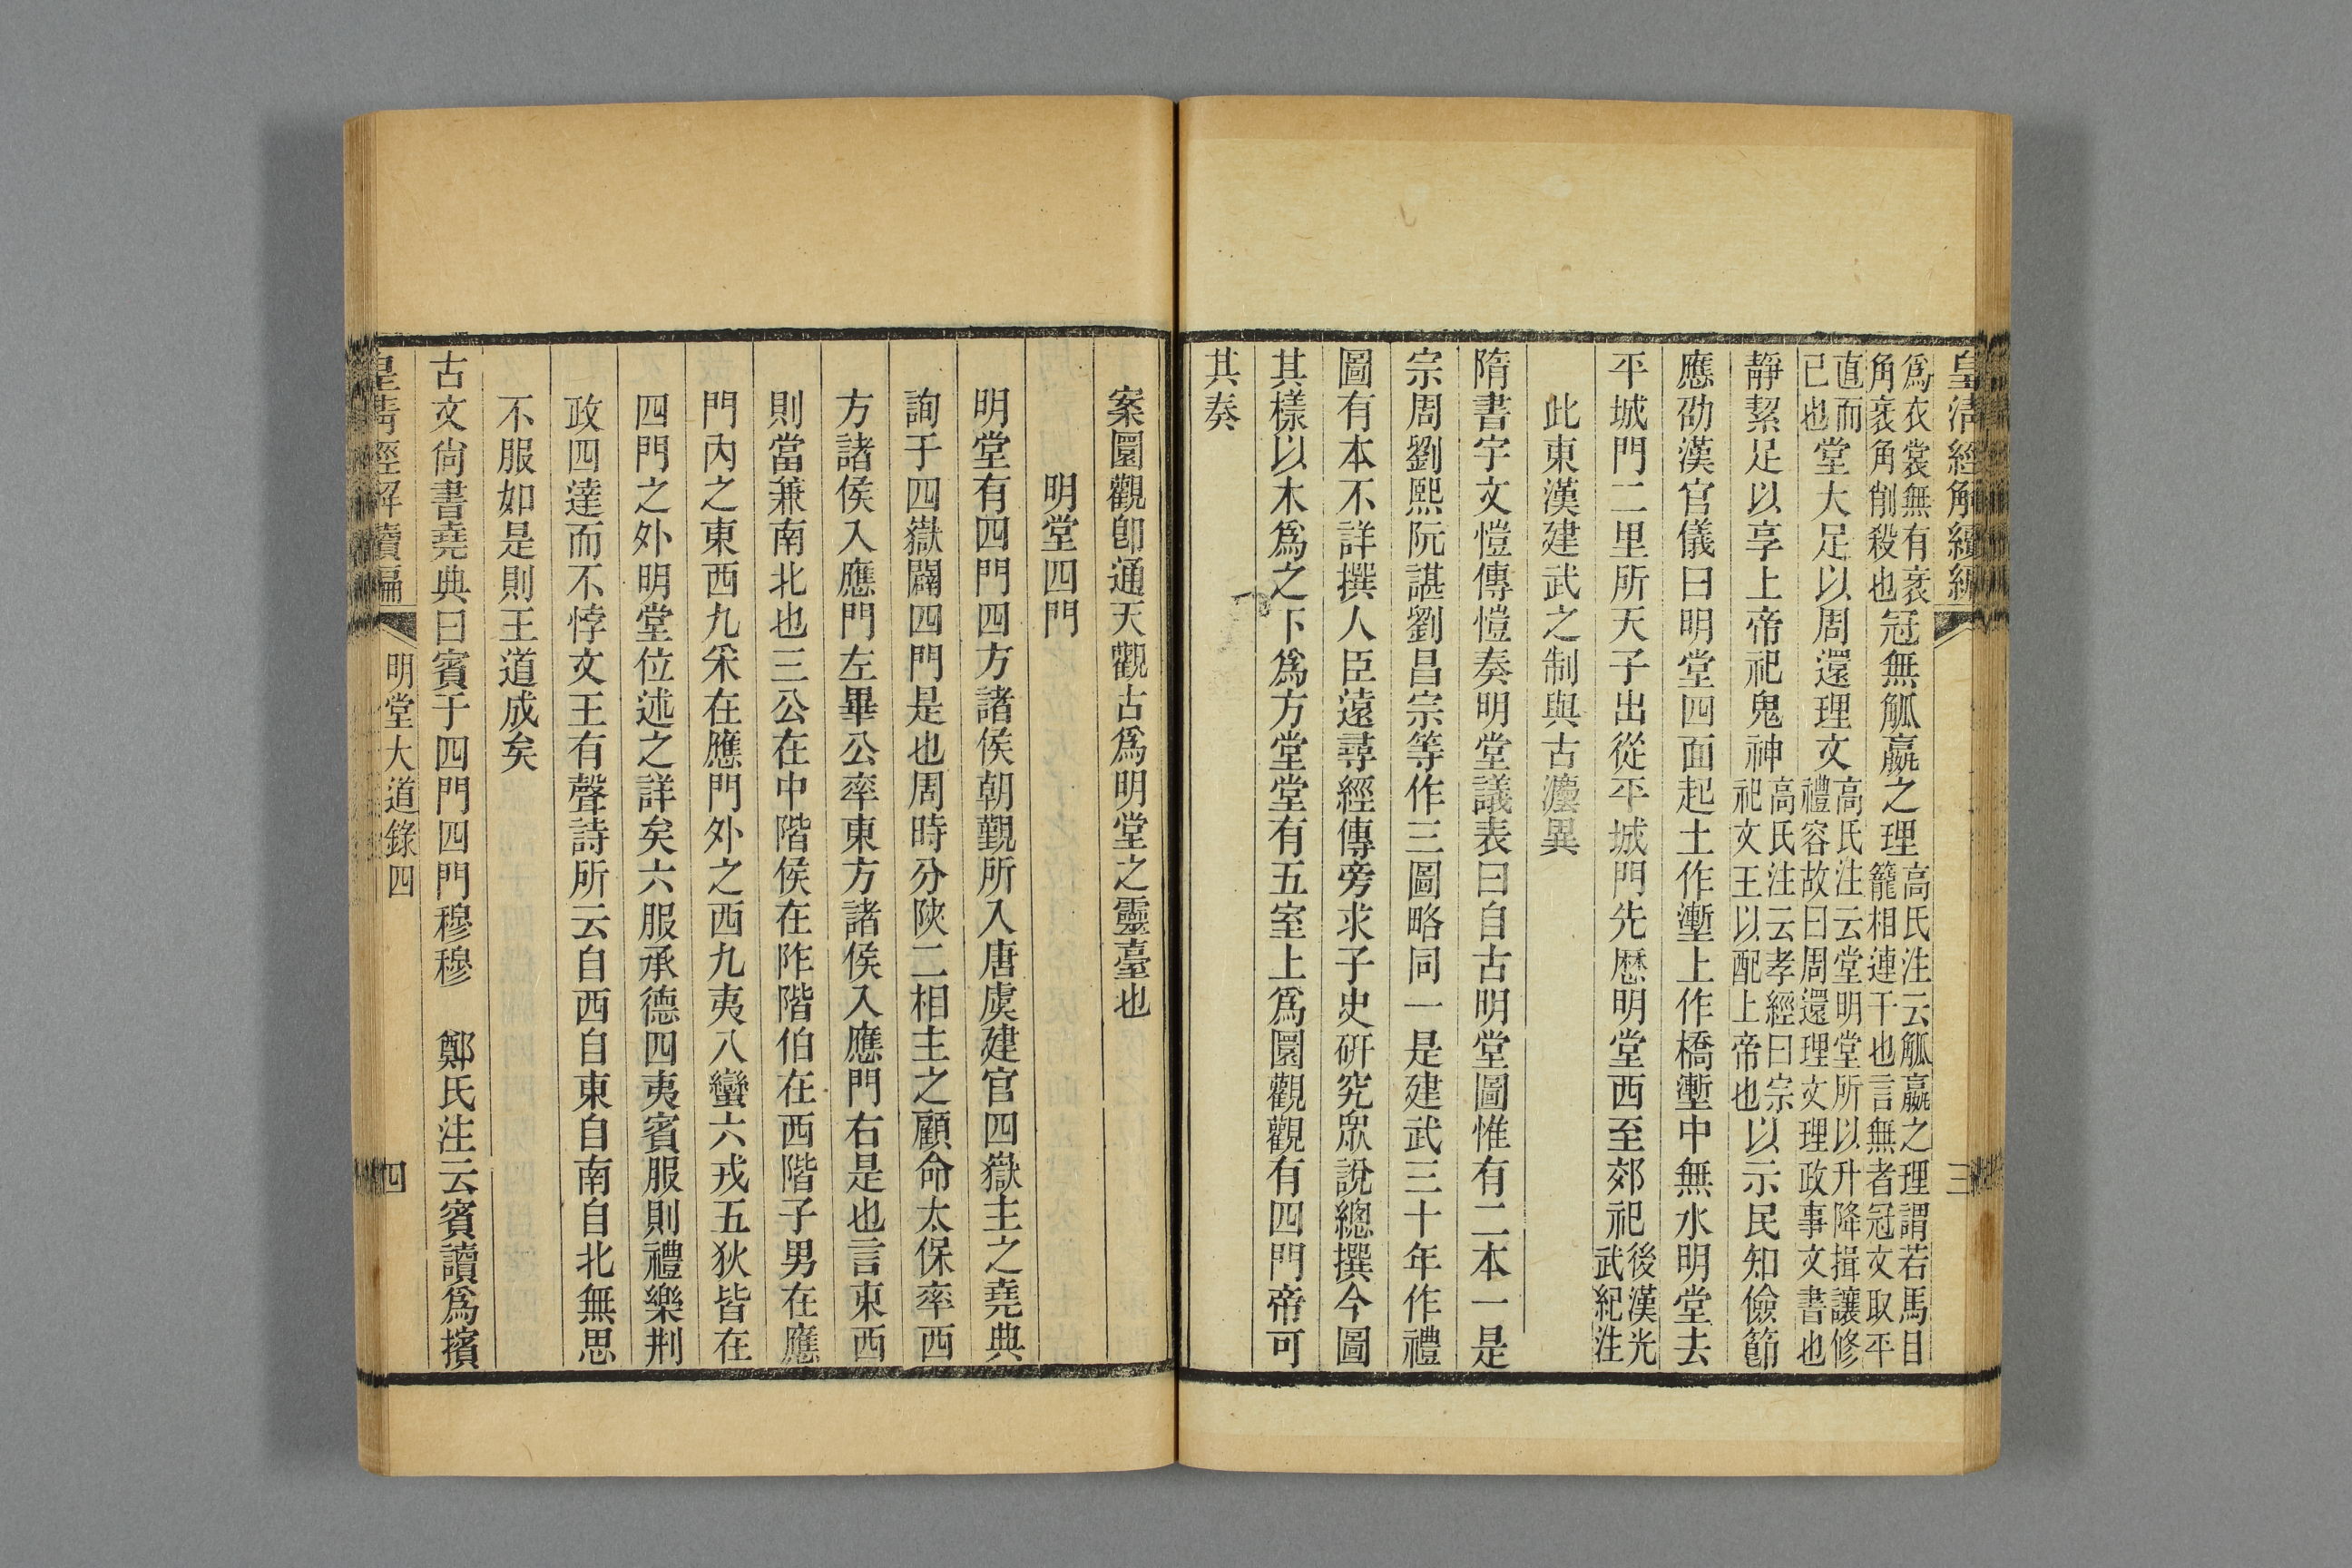 皇清經解續編
三
爲衣裳無有衺
角衺角削殺也冠無觚蠃之理高氏注云觚蠃之理謂若馬目
籠相連干也言無者冠文取平
直而
已也堂大足以周還理文高氏注云堂明堂所以升降揖讓修
禮容故曰周還理文理政事文書也
靜絜足以享上帝祀鬼神高氏注云孝經曰宗
祀文王以配上帝也以示民知儉節
應劭漢官儀曰明堂四面起土作塹上作橋塹中無水明堂去
平城門二里所天子出從平城門先歷明堂西至郊祀後漢光
武紀注
此東漢建武之制與古灋異
隋書宇文愷傳愷奏明堂議表曰自古明堂圖惟有二本一是
宗周劉熙阮諶劉昌宗等作三圖略同一是建武三十年作禮
圖有本不詳撰人臣遠尋經傳旁求子史硏究眾說總撰今圖
其樣以木爲之下爲方堂堂有五室上爲圜觀觀有四門帝可
其奏
案圜觀卽通天觀古爲明堂之靈臺也
明堂四門
明堂有四門四方諸侯朝覲所入唐虞建官四嶽主之堯典
詢于四嶽闢四門是也周時分陝二相主之顧命太保率西
方諸侯入應門左畢公率東方諸侯入應門右是也言東西
則當兼南北也三公在中階侯在阼階伯在西階子男在應
門內之東西九采在應門外之西九夷八蠻六戎五狄皆在
四門之外明堂位述之詳矣六服承德四夷賓服則禮樂刑
政四達而不悖文王有聲詩所云自西自東自南自北無思
不服如是則王道成矣
古文尙書堯典曰賓于四門四門穆穆　鄭氏注云賓讀爲擯
皇清經解續編
明堂大道錄四
四